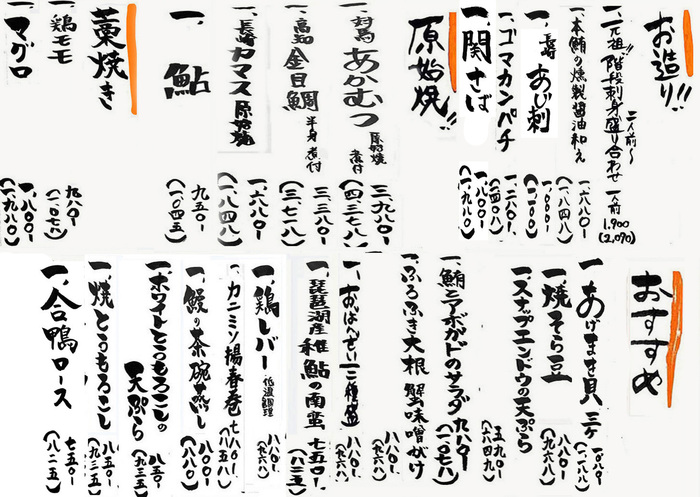 お造り!!
一、元祖!!階段刺身盛り合わせ 二人前〜 一人前 1,900 (2,090)
一、本鮪の燻製醤油和え 一、六八〇 (一、八四八)
一、長崎 あじ刺 一、〇〇〇 (一、一〇〇)
一、ゴマカンパチ 一、二八〇 (一、四〇八)
一、関さば 一、八〇〇 (一、九八〇)
原始焼!!
一、対馬 あかむつ 原始焼 煮付 三、九八〇 (四、三七八)
一、高知 金目鯛 半身 煮付 三、三八〇 (三、七一八)
一、長崎 カマス原始焼 一、六八〇 (一、八四八)
一、鮎 九五〇 (一、〇四五)
藁焼き
一、鶏モモ 九八〇 (一、〇七八)
一、マグロ 一、八〇〇 (一、九八〇)
おすすめ
一、あげまき貝 三ヶ 一、〇八〇 (一、一八八)
一、焼そら豆 八八〇 (九六八)
一、スナップエンドウの天ぷら 五九〇 (六四九)
一、鮪とアボガドのサラダ 九八〇 (一、〇七八)
一、ふろふき大根 蟹味噌がけ 八八〇 (九六八)
一、おばんざい三種盛 八八〇 (九六八)
一、琵琶湖産 稚鮎の南蛮 七五〇 (八二五)
一、鶏レバー 低温調理 八八〇 (九六八)
一、カニミソ揚春巻 七八〇 (八五八)
一、鰻の茶碗蒸し 八〇〇 (八八〇)
一、ホワイトとうもろこしの天ぷら 八五〇 (九三五)
一、焼とうもろこし 八五〇 (九三五)
一、合鴨ロース 七五〇 (八二五)